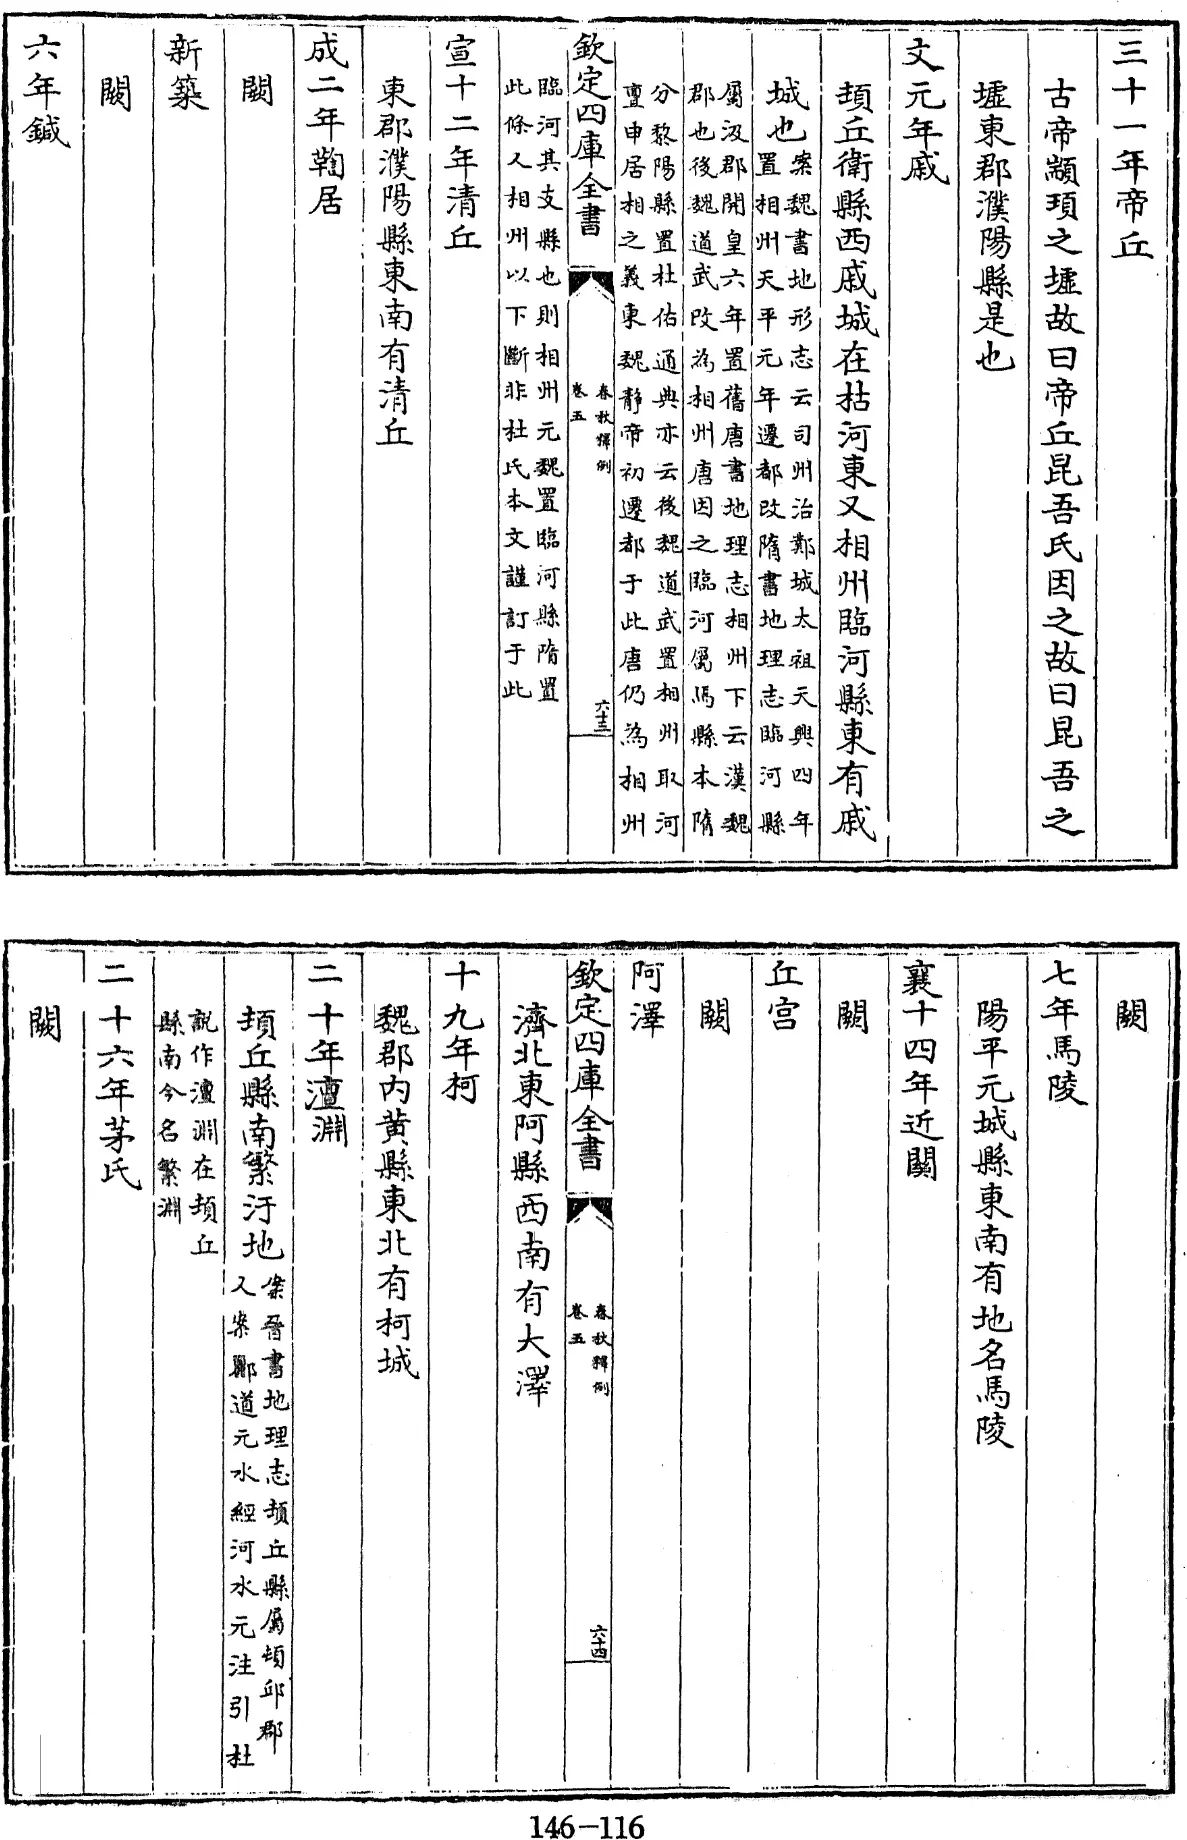 三十一年帝丘
古帝顓頊之墟故曰帝丘昆吾氏因之故曰昆吾之
墟東郡濮陽縣是也
文元年戚
頓丘衛縣西戚城在枯河東又相州臨河縣東有戚
城也案魏書地形志云司州治鄴城太祖天興四年
置相州天平元年遷都改隋書地理志臨河縣
屬汲郡開皇六年置舊唐書地理志相州下云漢魏
郡也後魏道武改為相州唐因之臨河屬焉縣本隋
分黎陽縣置杜佑通典亦云後魏道武置相州取河
亶申居相之義東魏靜帝初遷都于此唐仍為相州
欽定四庫全書
春秋釋例
卷五
六十三
臨河其支縣也則相州元魏置臨河縣隋置
此條又相州以下斷非杜氏本文謹訂于此
宣十二年清丘
東郡濮陽縣東南有清丘
成二年鞫居
闕
新築
闕
六年鍼
闕
七年馬陵
陽平元城縣東南有地名馬陵
襄十四年近關
闕
丘宮
闕
阿澤
欽定四庫全書
春秋釋例
卷五
六十四
濟北東阿縣西南有大澤
十九年柯
魏郡内黃縣東北有柯城
二十年澶淵
頓丘縣南繁汙地案晉書地理志頓丘縣屬頓邱郡
又案酈道元水經河水元注引杜
説作澶淵在頓丘
縣南今名繁淵
二十六年茅氏
闕
146-116